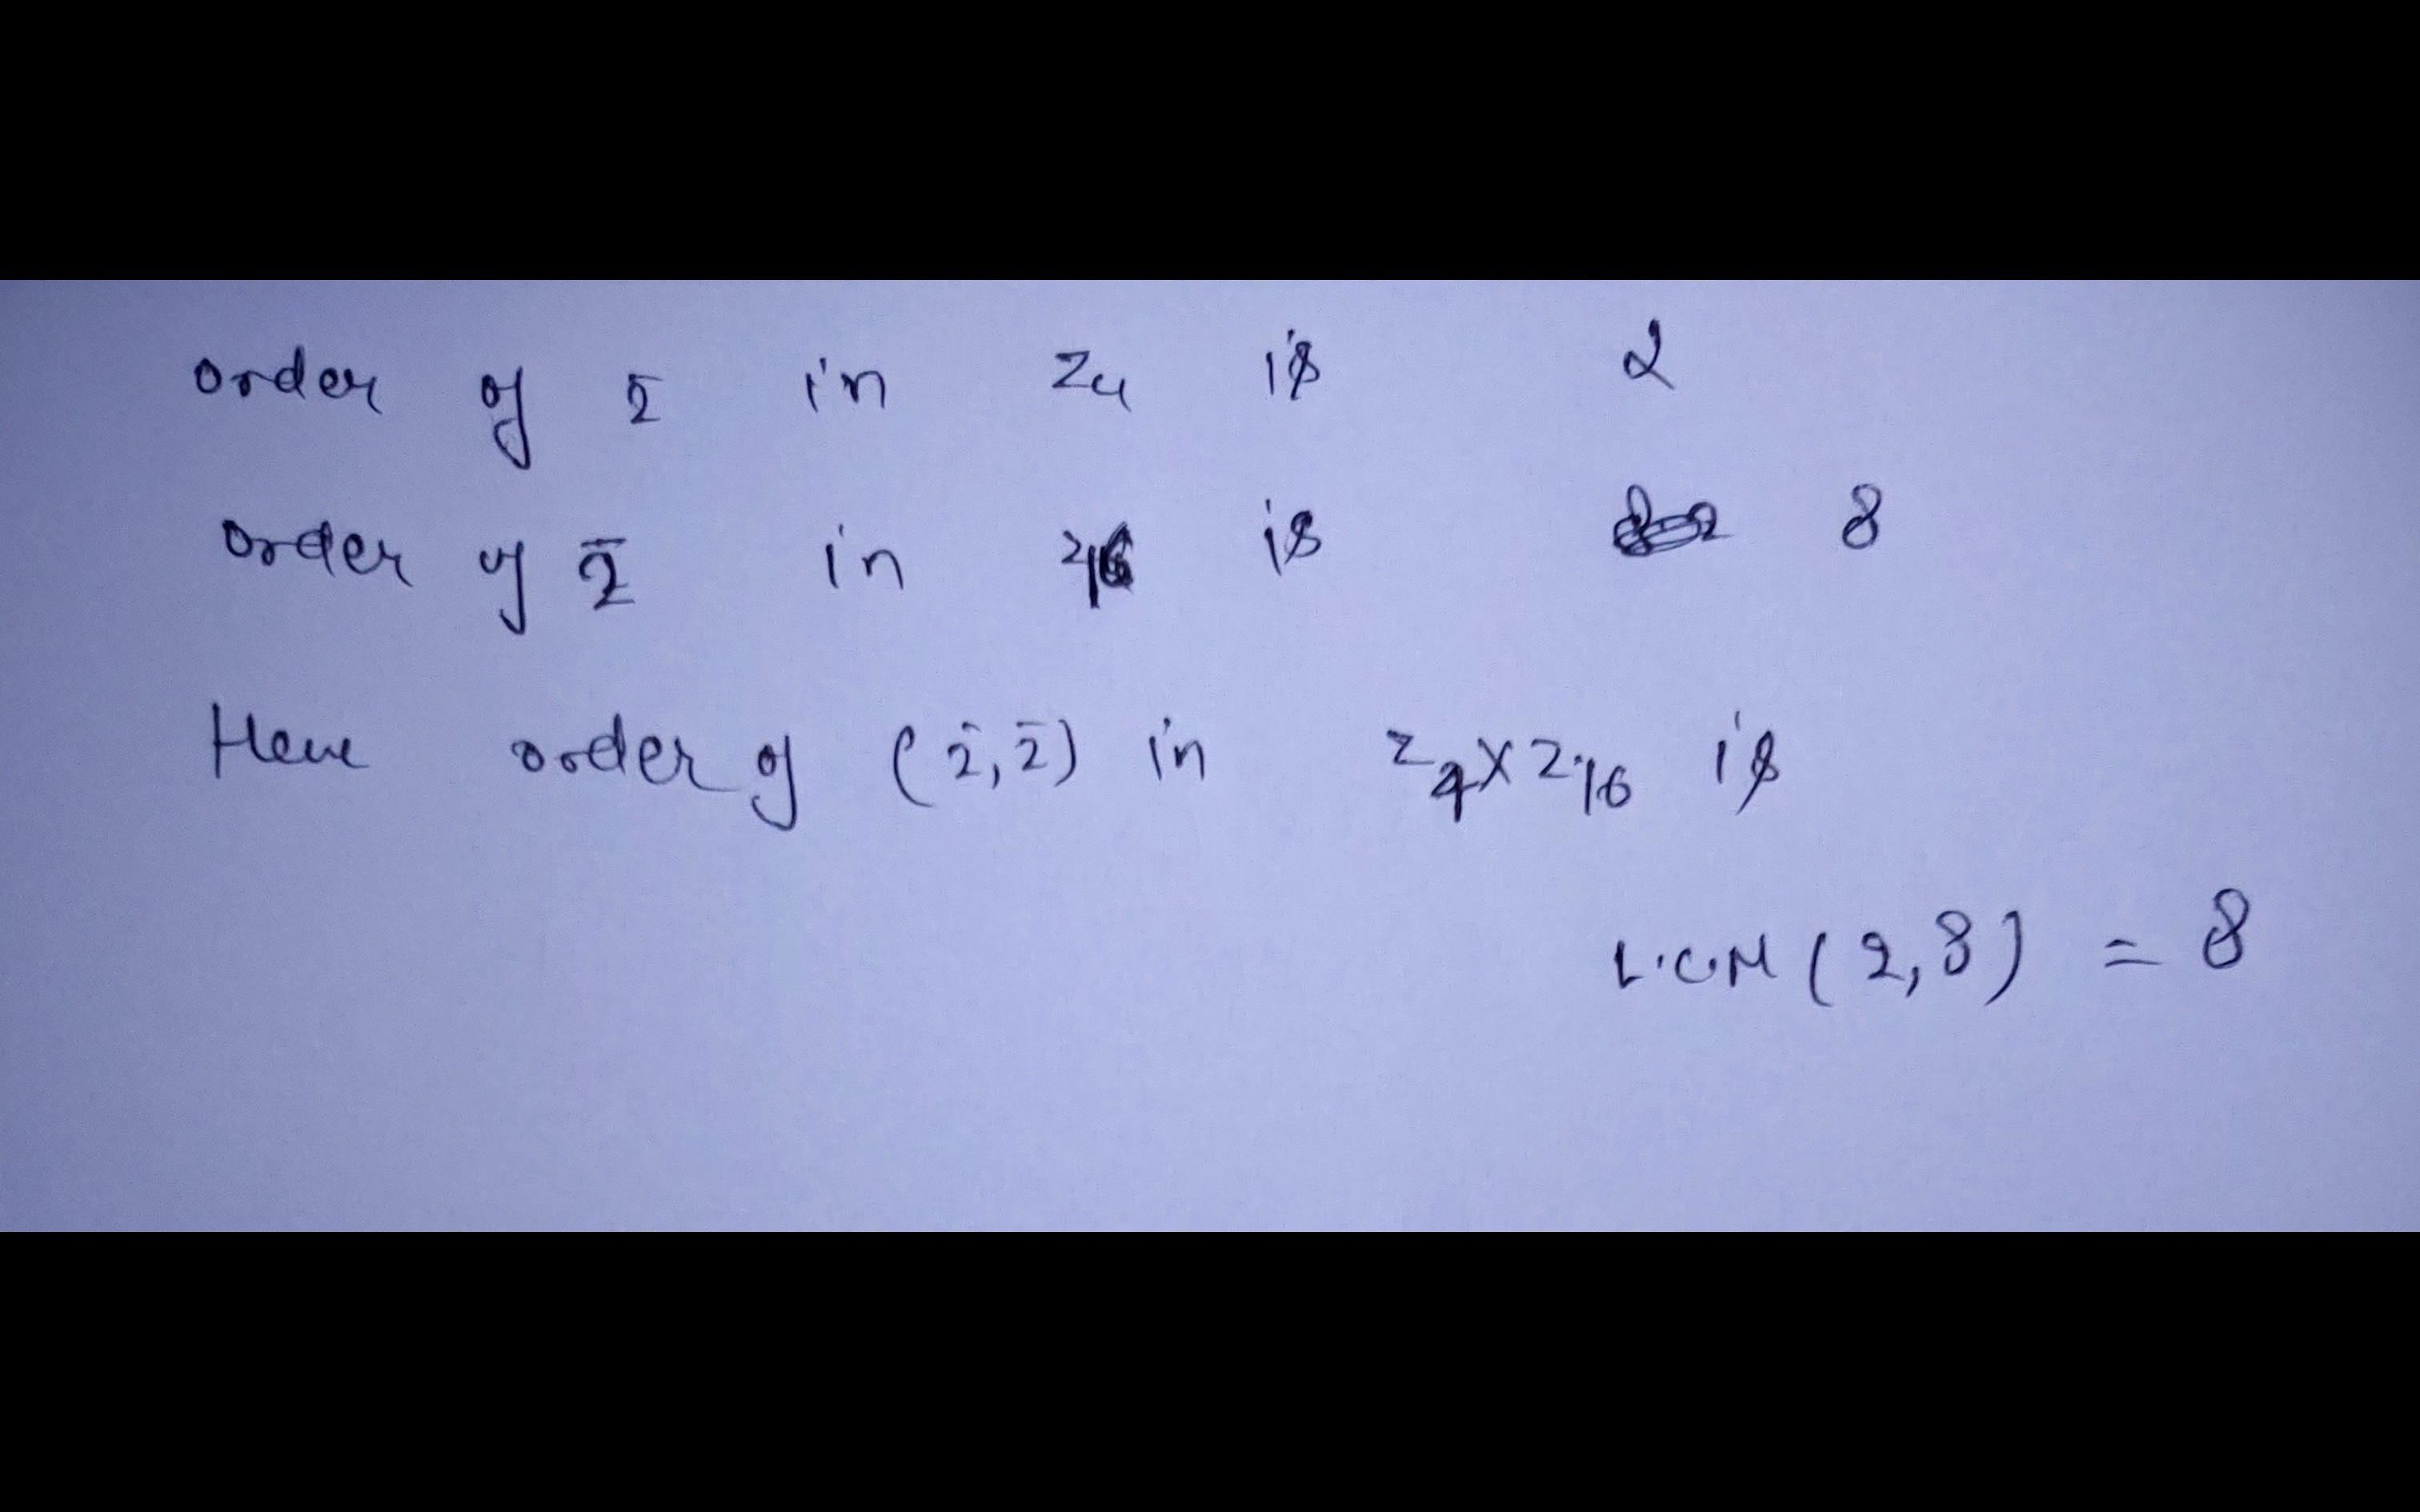 order of 2̄ in Z₄ is 2
order of 2̄ in Z₁₆ is 8
Here order of (2̄, 2̄) in Z₄ x Z₁₆ is
L.C.M (2, 8) = 8